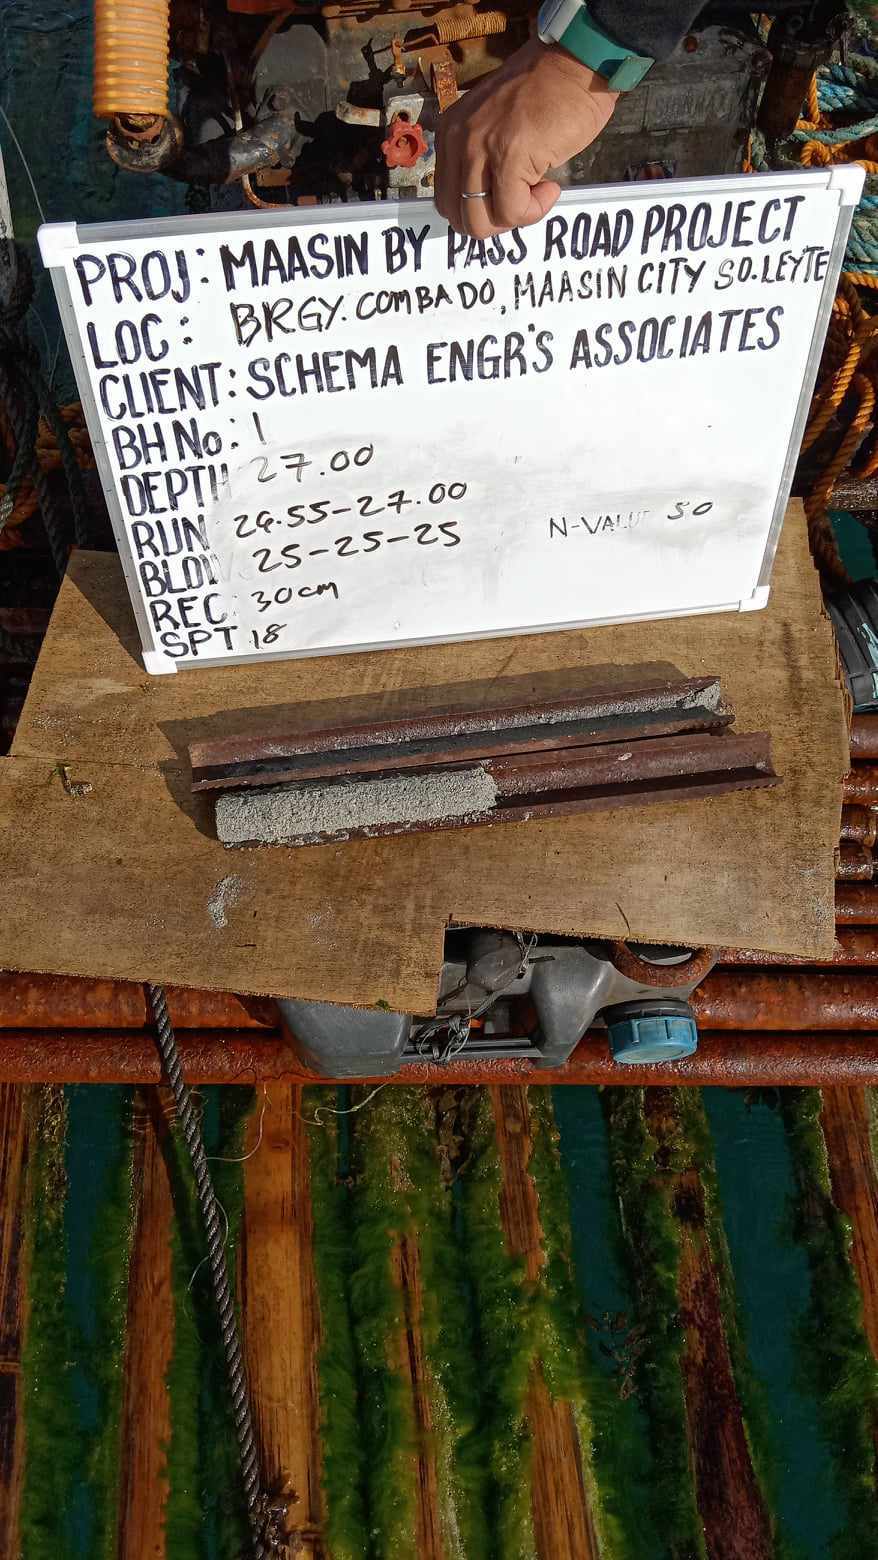 PROJ: MAASIN BY PASS ROAD PROJECT
LOC: BRGY. COMBADO, MAASIN CITY SO. LEYTE
CLIENT: SCHEMA ENGR'S ASSOCIATES
BH No: 1
DEPTH 27.00
RUN 26.55-27.00
BLOW 25-25-25 N-VALUE 50
REC: 30cm
SPT 18